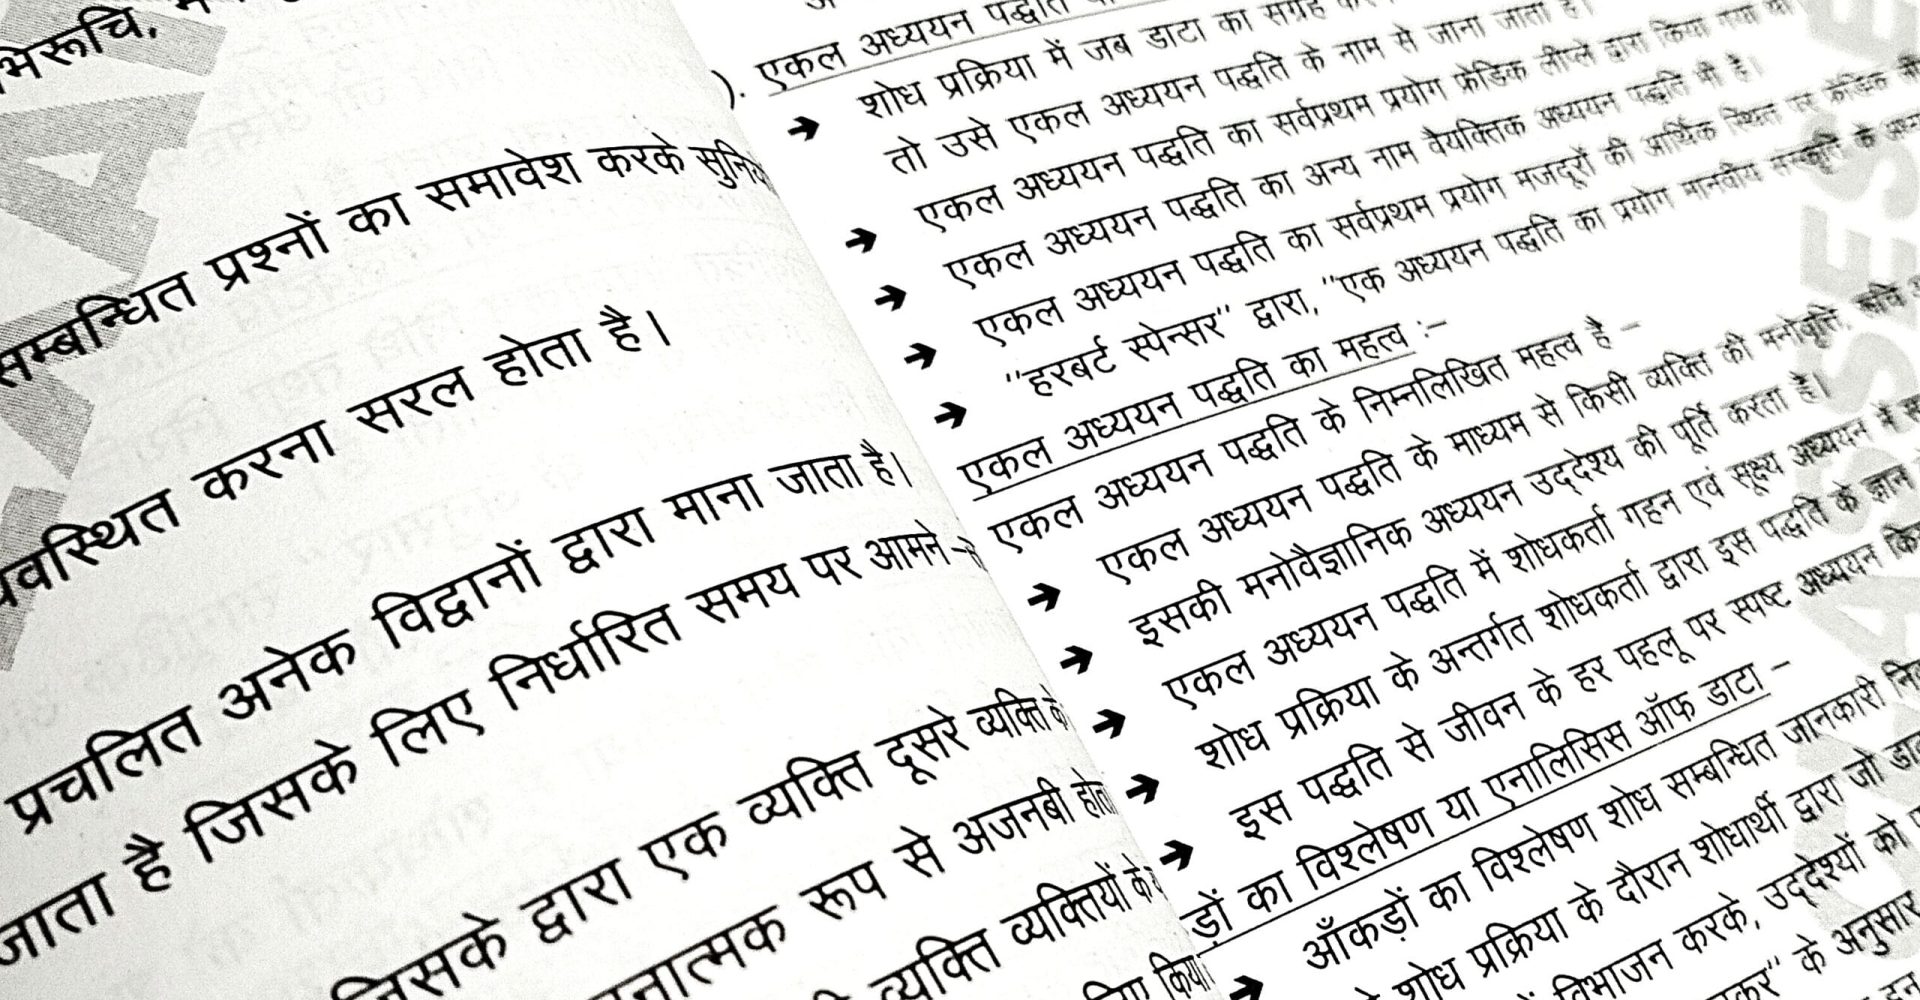 भिरूचि,
सम्बन्धित प्रश्नों का समावेश करके
करना सरल होता है।
प्रचलित अनेक विद्वानों द्वारा माना जाता है।
जाता है जिसके लिए निर्धारित समय पर आमने
जिसके द्वारा एक व्यक्ति दूसरे व्यक्ति
रूप से अजनबी
व्यक्ति व्यक्तियों के
). एकल अध्ययन पद्धति
➔ शोध प्रक्रिया में जब डाटा का संग्रह
तो उसे एकल अध्ययन पद्धति के नाम से जाना जाता है।
➔ एकल अध्ययन पद्धति का सर्वप्रथम प्रयोग फ्रेडिक लीप्ले द्वारा किया गया
➔ एकल अध्ययन पद्धति का अन्य नाम वैयक्तिक अध्ययन पद्धति भी है।
➔ एकल अध्ययन पद्धति का सर्वप्रथम प्रयोग मजदूरों की आर्थिक स्थित पर फ्रेडिक
➔ "हरबर्ट स्पेन्सर" द्वारा, "एक अध्ययन पद्धति का प्रयोग मानवीय संस्कृति के
एकल अध्ययन पद्धति का महत्व :–
एकल अध्ययन पद्धति के निम्नलिखित महत्व है –
➔ एकल अध्ययन पद्धति के माध्यम से किसी व्यक्ति की मनोवृत्ति,
➔ इसकी मनोवैज्ञानिक अध्ययन उद्देश्य की पूर्ति करता है।
➔ एकल अध्ययन पद्धति में शोधकर्ता गहन एवं सूक्ष्य अध्ययन में
➔ शोध प्रक्रिया के अन्तर्गत शोधकर्ता द्वारा इस पद्धति के ज्ञान
➔ इस पद्धति से जीवन के हर पहलू पर स्पष्ट अध्ययन
ड़ों का विश्लेषण या एनालिसिस ऑफ डाटा –
➔ आँकड़ों का विश्लेषण शोध सम्बन्धित जानकारी
शोध प्रक्रिया के दौरान शोधार्थी द्वारा जो
विभाजन करके, उद्देश्यों को
के अनुसार